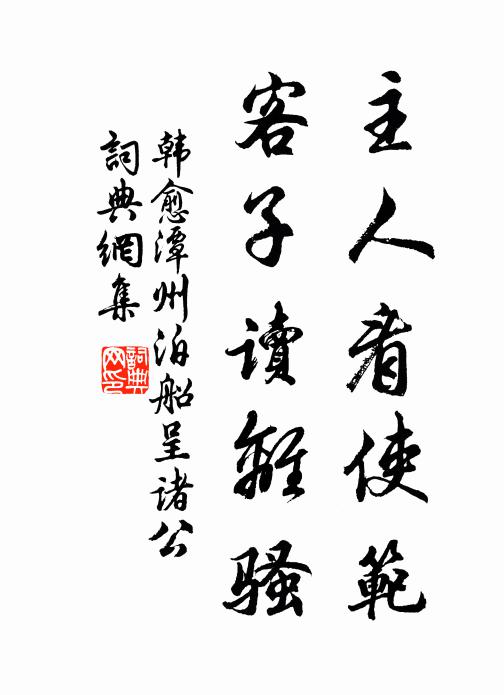 主人看使範
客子讀離騷
韩愈潭州泊船呈诸公
詞典網集
詞典网印